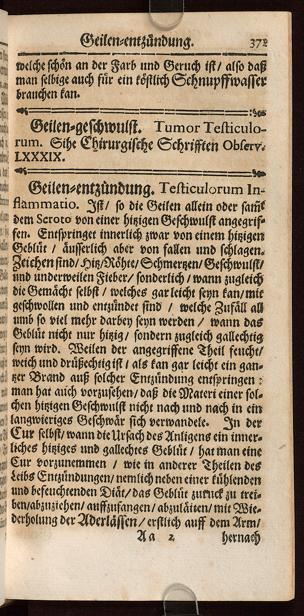 Geilen-entzündung. 372
welche schön an der Farb und Geruch ist / also daß
man selbige auch für ein köstlich Schnupffwasser
brauchen kan.
Geilen-geschwulst. Tumor Testiculo-
rum. Sihe Chirurgische Schrifften Observ.
LXXXIX.
Geilen-entzündung. Testiculorum In-
flammatio. Ist / so die Geilen allein oder samt
dem Scroto von einer hitzigen Geschwulst angegrif-
fen. Entspringet innerlich zwar von einem hitzigen
Geblüt / äusserlich aber von fallen und schlagen.
Zeichen sind / Hitz / Röhte / Schmertzen / Geschwulst /
und underweilen Fieber / sonderlich / wann zugleich
die Gemächt selbst / welches gar leicht seyn kan / mit
geschwollen und entzündet sind / welche Zufäll all
umb so viel mehr darbey seyn werden / wann das
Geblüt nicht nur hitzig / sondern zugleich gallechtig
seyn wird. Weilen der angegriffene Theil feucht /
weich und drüsechtig ist / als kan gar leicht ein gan-
zer Brand auß solcher Entzündung entspringen:
man hat auch vorzusehen / daß die Materi einer sol-
chen hitzigen Geschwulst nicht nach und nach in ein
langwieriges Geschwär sich verwandele. In der
Cur selbst / wann die Ursach des Anligens ein inner-
liches hitziges und gallechtes Geblüt / hat man eine
Cur vorzunemmen / wie in anderer Theilen des
Leibs Entzündungen / nemlich neben einer kühlenden
und befeuchtenden Diät / das Geblüt zuruck zu trei-
ben / abzuziehen / auffzufangen / abzuläiten / mit Wie-
derholung der Aderlässen / erstlich auff dem Arm /
Aa 2 hernach